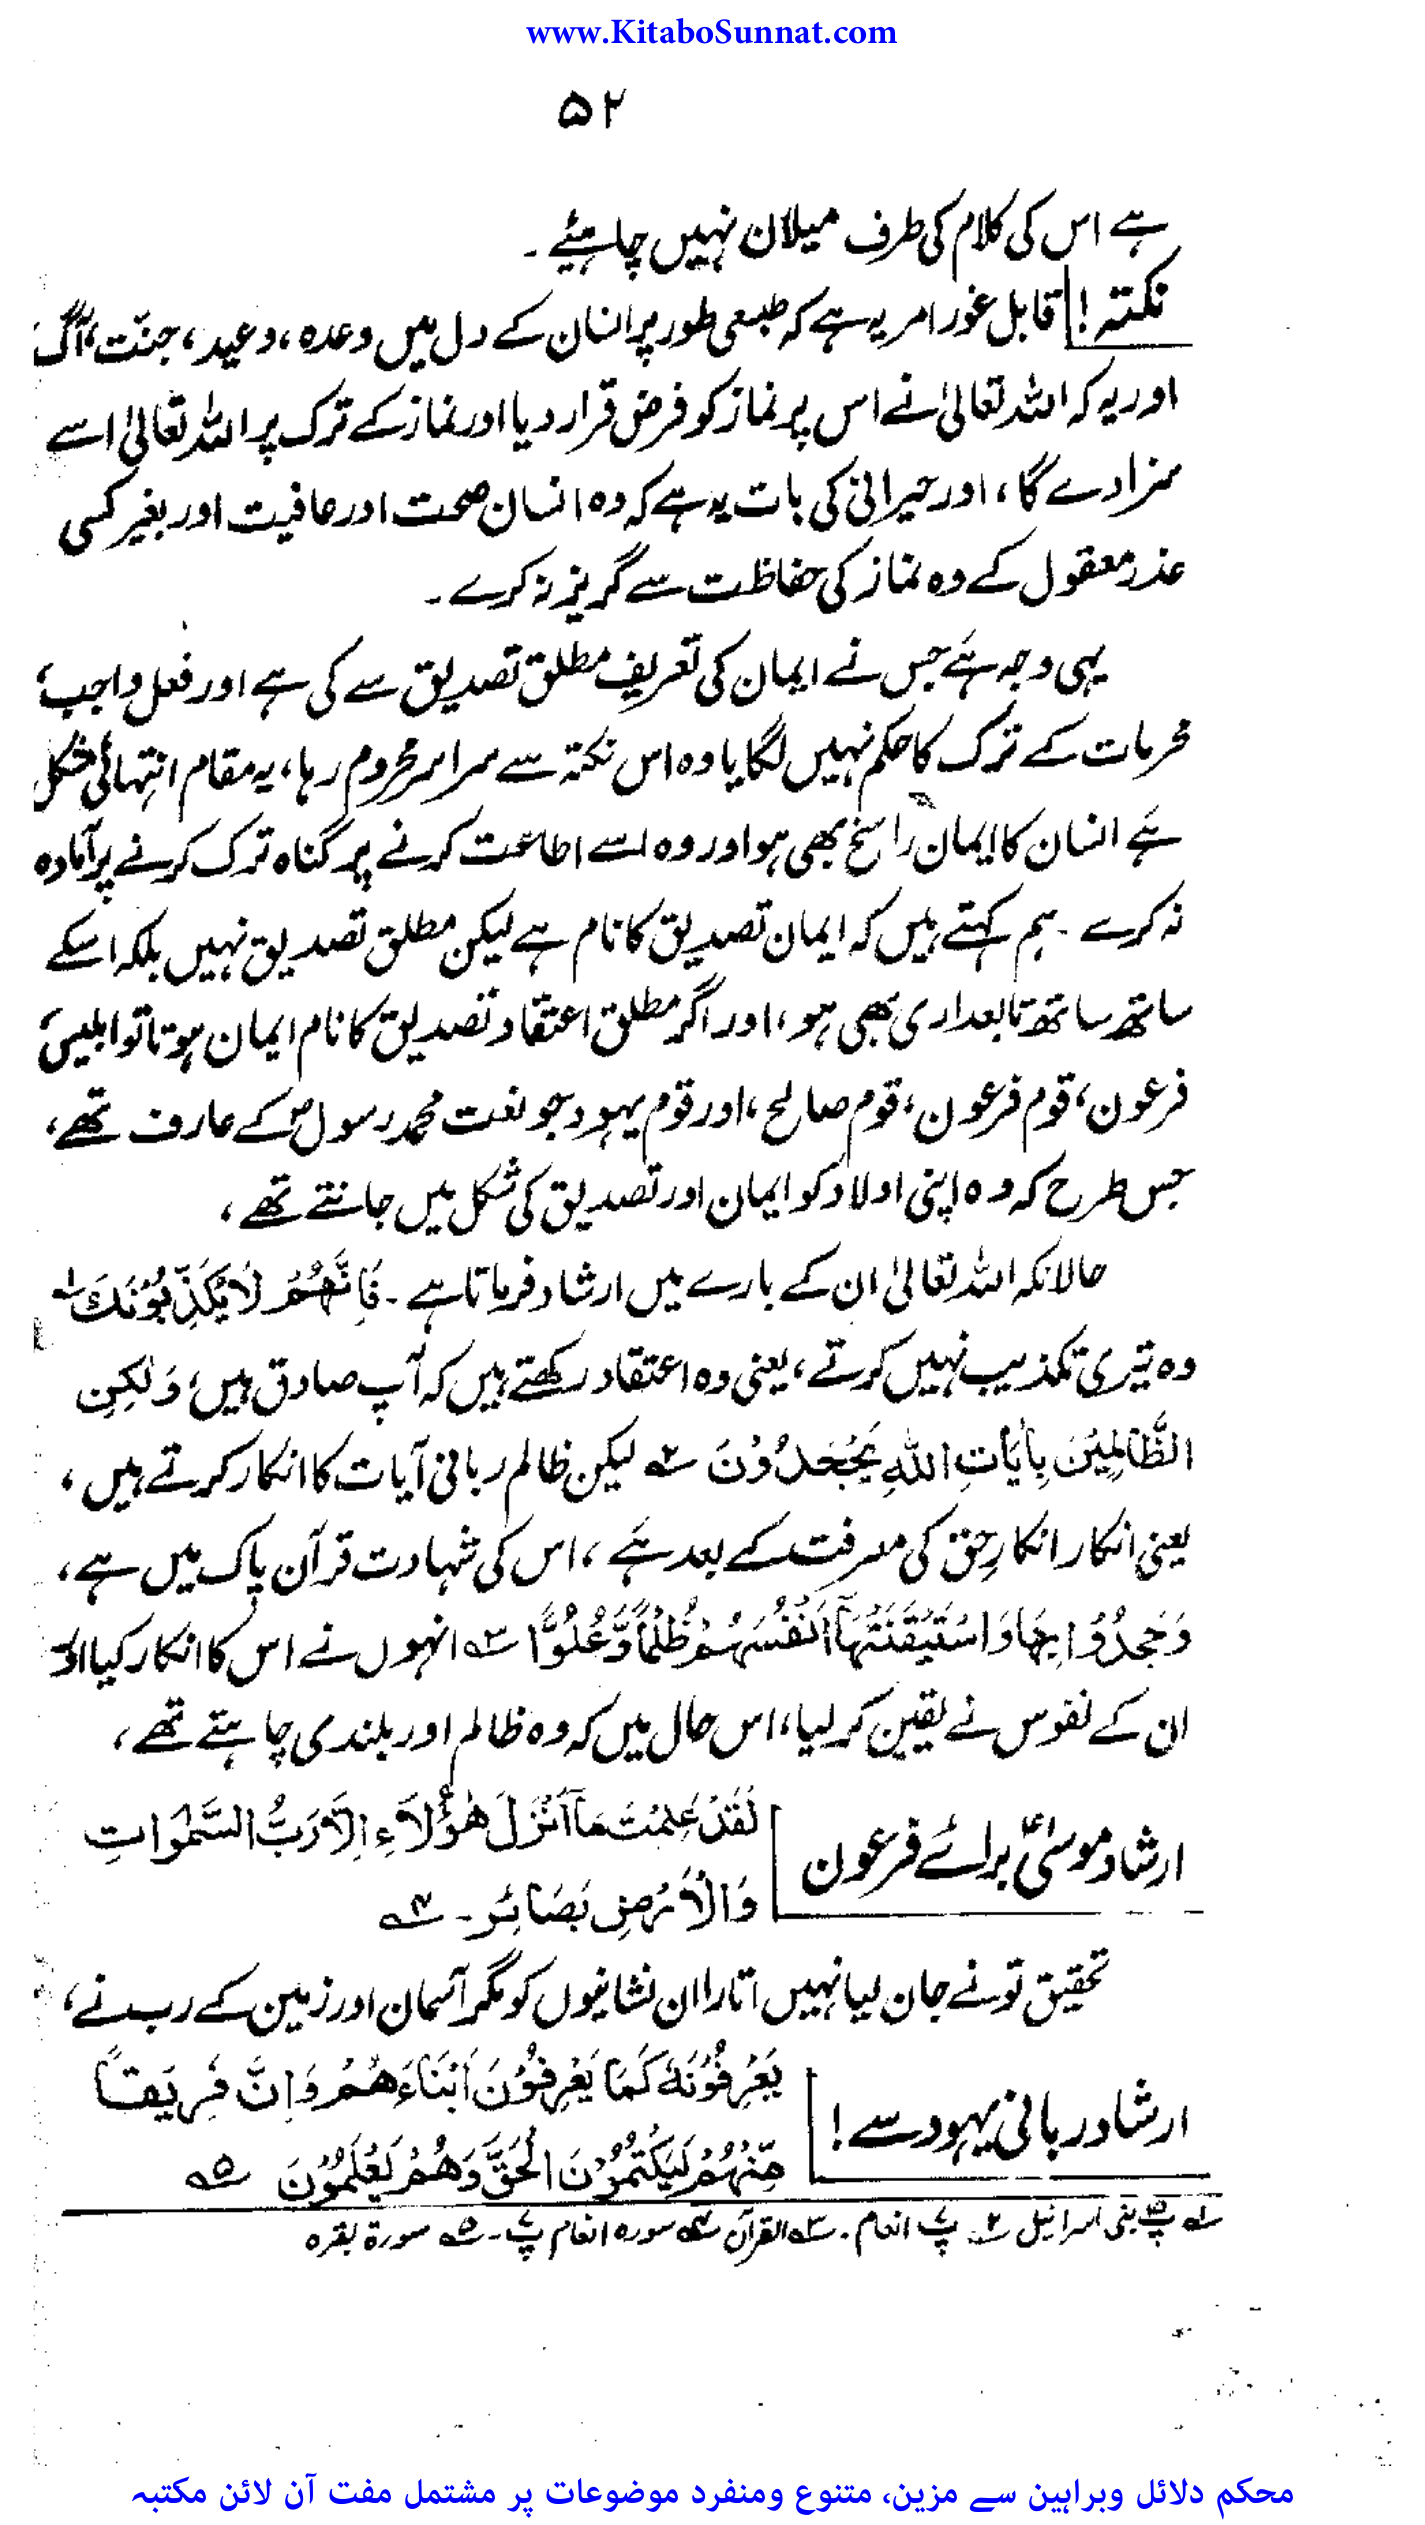 www.KitaboSunnat.com
۵۲
ہے اس کی کلام کی طرف میلان نہیں چاہئیے ۔
نکتہ ! قابل غور امر یہ ہے کہ طبعی طور پر انسان کے دل میں وعدہ ، وعید ، جنّت ، آگ
اور یہ کہ اللہ تعالیٰ نے اس پر نماز کو فرض قرار دیا اور نماز کے ترک پر اللہ تعالیٰ اسے
سزا دے گا ، اور حیرانی کی بات یہ ہے کہ وہ انسان صحت اور عافیت اور بغیر کسی
عذر معقول کے وہ نماز کی حفاظت سے گریز نہ کرے ۔
یہی وجہ ہے جس نے ایمان کی تعریف مطلق تصدیق سے کی ہے اور فعل واجب ،
محرمات کے ترک کا حکم نہیں لگایا وہ اس نکتہ سے سراسر محروم رہا ، یہ مقام انتہائی مشکل
ہے انسان کا ایمان راسخ بھی ہو اور وہ اسے اطاعت کرنے پر گناہ ترک کرنے پر آمادہ
نہ کرے ۔ ہم کہتے ہیں کہ ایمان تصدیق کا نام ہے لیکن مطلق تصدیق نہیں بلکہ اسکے
ساتھ ساتھ تابعداری بھی ہو ، اور اگر مطلق اعتقاد تصدیق کا نام ایمان ہوتا تو ابلیس ،
فرعون ، قوم فرعون ، قوم صالح ، اور قوم یہود جو نعت محمد رسولؐ کے عارف تھے ،
جس طرح کہ وہ اپنی اولاد کو ایمان اور تصدیق کی شکل میں جانتے تھے ،
حالانکہ اللہ تعالیٰ ان کے بارے میں ارشاد فرماتا ہے ۔ فَاِنَّهُمْ لَا يُكَذِّبُوْنَكَ ۱؎
وہ تیری تکذیب نہیں کرتے ، یعنی وہ اعتقاد رکھتے ہیں کہ آپ صادق ہیں ، وَلٰكِنِ
الظَّالِمِيْنَ بِاٰيَاتِ اللّٰهِ يَجْحَدُوْنَ ۲؎ لیکن ظالم ربانی آیات کا انکار کرتے ہیں ،
یعنی انکار انکارِ حق کی معرفت کے بعد ہے ، اس کی شہادت قرآن پاک میں ہے ،
وَجَحَدُوْا بِهَا وَاسْتَيْقَنَتْهَآ اَنْفُسَهُمْ ظُلْمًا وَّعُلُوًّا ۳؎ انہوں نے اس کا انکار کیا اور
ان کے نفوس نے یقین کر لیا ، اس حال میں کہ وہ ظالم اور بلندی چاہتے تھے ،
ارشاد موسیٰؑ برائے فرعون
لَقَدْ عَلِمْتَ مَآ اَنْزَلَ هٰٓؤُلَآءِ اِلَّا رَبُّ السَّمٰوَاتِ
وَالْاَرْضِ بَصَائِرَ ۔ ۴؎
تحقیق تو نے جان لیا نہیں اتارا ان نشانیوں کو مگر آسمان اور زمین کے رب نے ،
ارشاد ربانی یہود سے !
يَعْرِفُوْنَهٗ كَمَا يَعْرِفُوْنَ اَبْنَاءَهُمْ وَاِنَّ فَرِيْقًا
مِّنْهُمْ لَيَكْتُمُوْنَ الْحَقَّ وَهُمْ يَعْلَمُوْنَ ۵؎
۱؎ پ۱۵ بنی اسرائیل ۲؎ پ۷ انعام ۔ ۳؎ القرآن ۴؎ سورہ انعام پ۷ ۔ ۵؎ سورۃ بقرہ
محکم دلائل وبراہین سے مزین، متنوع ومنفرد موضوعات پر مشتمل مفت آن لائن مکتبہ